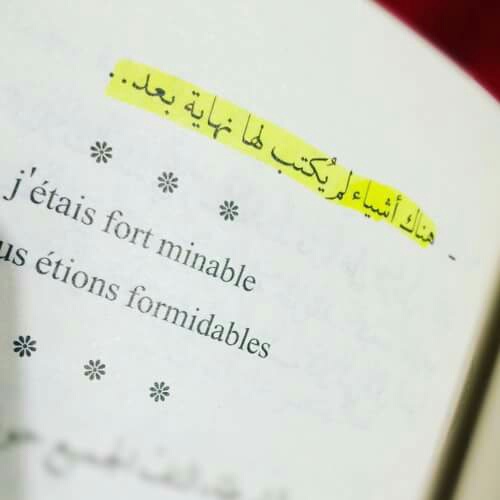 - هناك أشياء لم يُكتب لها نهاية بعد..
❊ ❊ ❊
j'étais fort minable
us étions formidables
❊ ❊ ❊